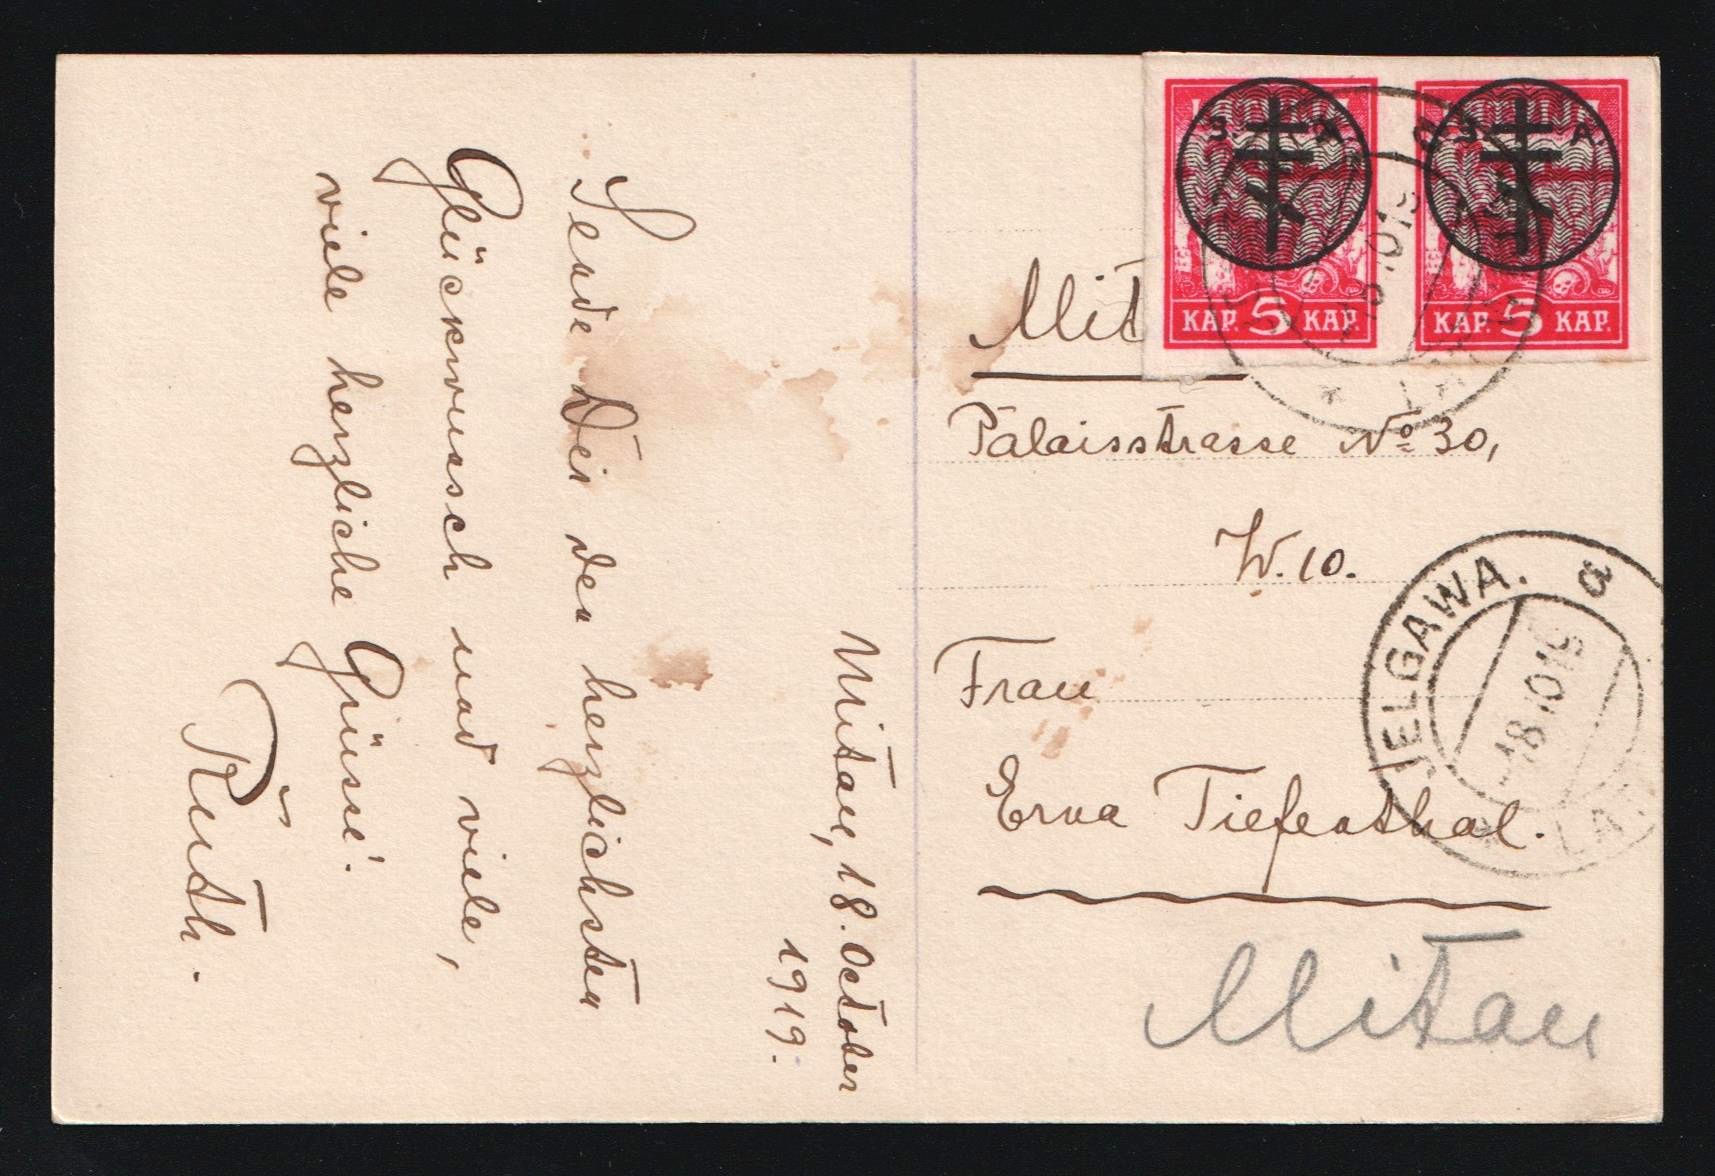 Mitau, 18. October
1919.
Sende Dir den herzlichsten
Glückwunsch und viele,
viele herzliche Grüsse!
Ruth.
З. А.
KAP. 5 KAP.
З. А.
KAP. 5 KAP.
Mit
Palaisstrasse No 30,
W. 10.
Frau
Erna Tiefenthal.
Mitau
JELGAWA. a
18 10 19